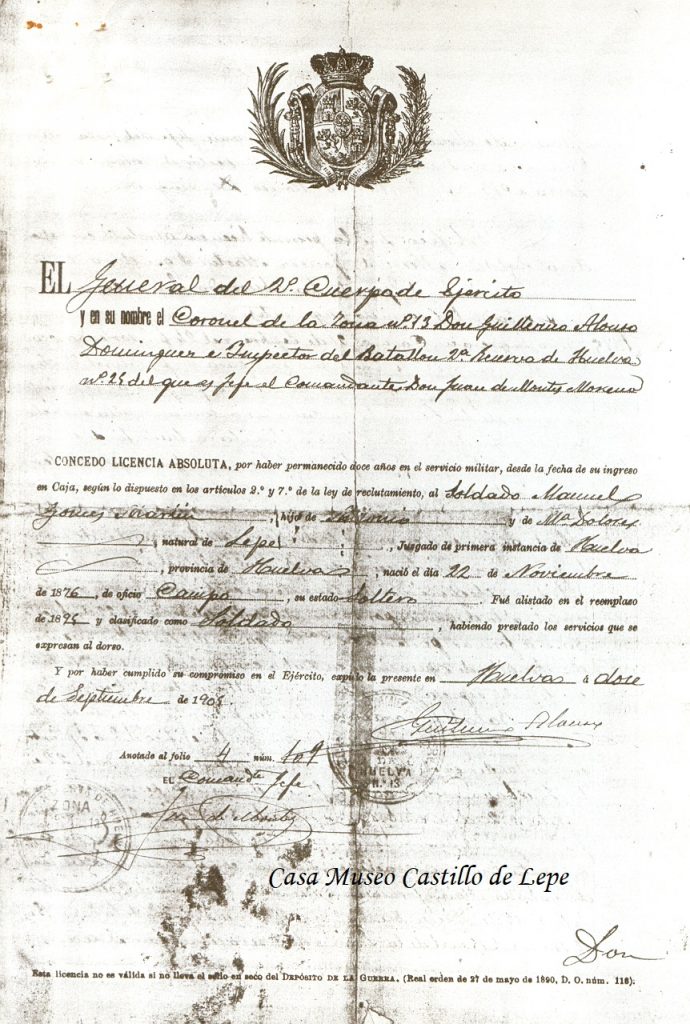 EL General del 2º Cuerpo de Ejército
y en su nombre el Coronel de la Zona nº 13 Don Guillermo Alonso
Dominguez e Inspector del Batallon 2ª Reserva de Huelva
nº 25 del que es Jefe el Comandante Don Juan de Montes Moreno
CONCEDO LICENCIA ABSOLUTA, por haber permanecido doce años en el servicio militar, desde la fecha de su ingreso
en Caja, según lo dispuesto en los artículos 2.º y 7.º de la ley de reclutamiento, al Soldado Manuel
Gomes Martin, hijo de y de Mª Dolores
, natural de Lepe, Juzgado de primera instancia de Huelva
, provincia de Huelva, nació el día 22 de Noviembre
de 1876, de oficio Campo, su estado Soltero. Fué alistado en el reemplaso
de 1895 y clasificado como Soldado, habiendo prestado los servicios que se
expresan al dorso.
Y por haber cumplido su compromiso en el Ejército, expido la presente en Huelva á doce
de Septiembre de 190
Guillermo Alonso
Anotado al folio 4 núm. 109
EL Comandte Jefe
HUELVA
N.º 13
ZONA
Casa Museo Castillo de Lepe
Don
Esta licencia no es válida si no lleva el sello en seco del DEPÓSITO DE LA GUERRA. (Real orden de 27 de mayo de 1890, D. O. núm. 118).